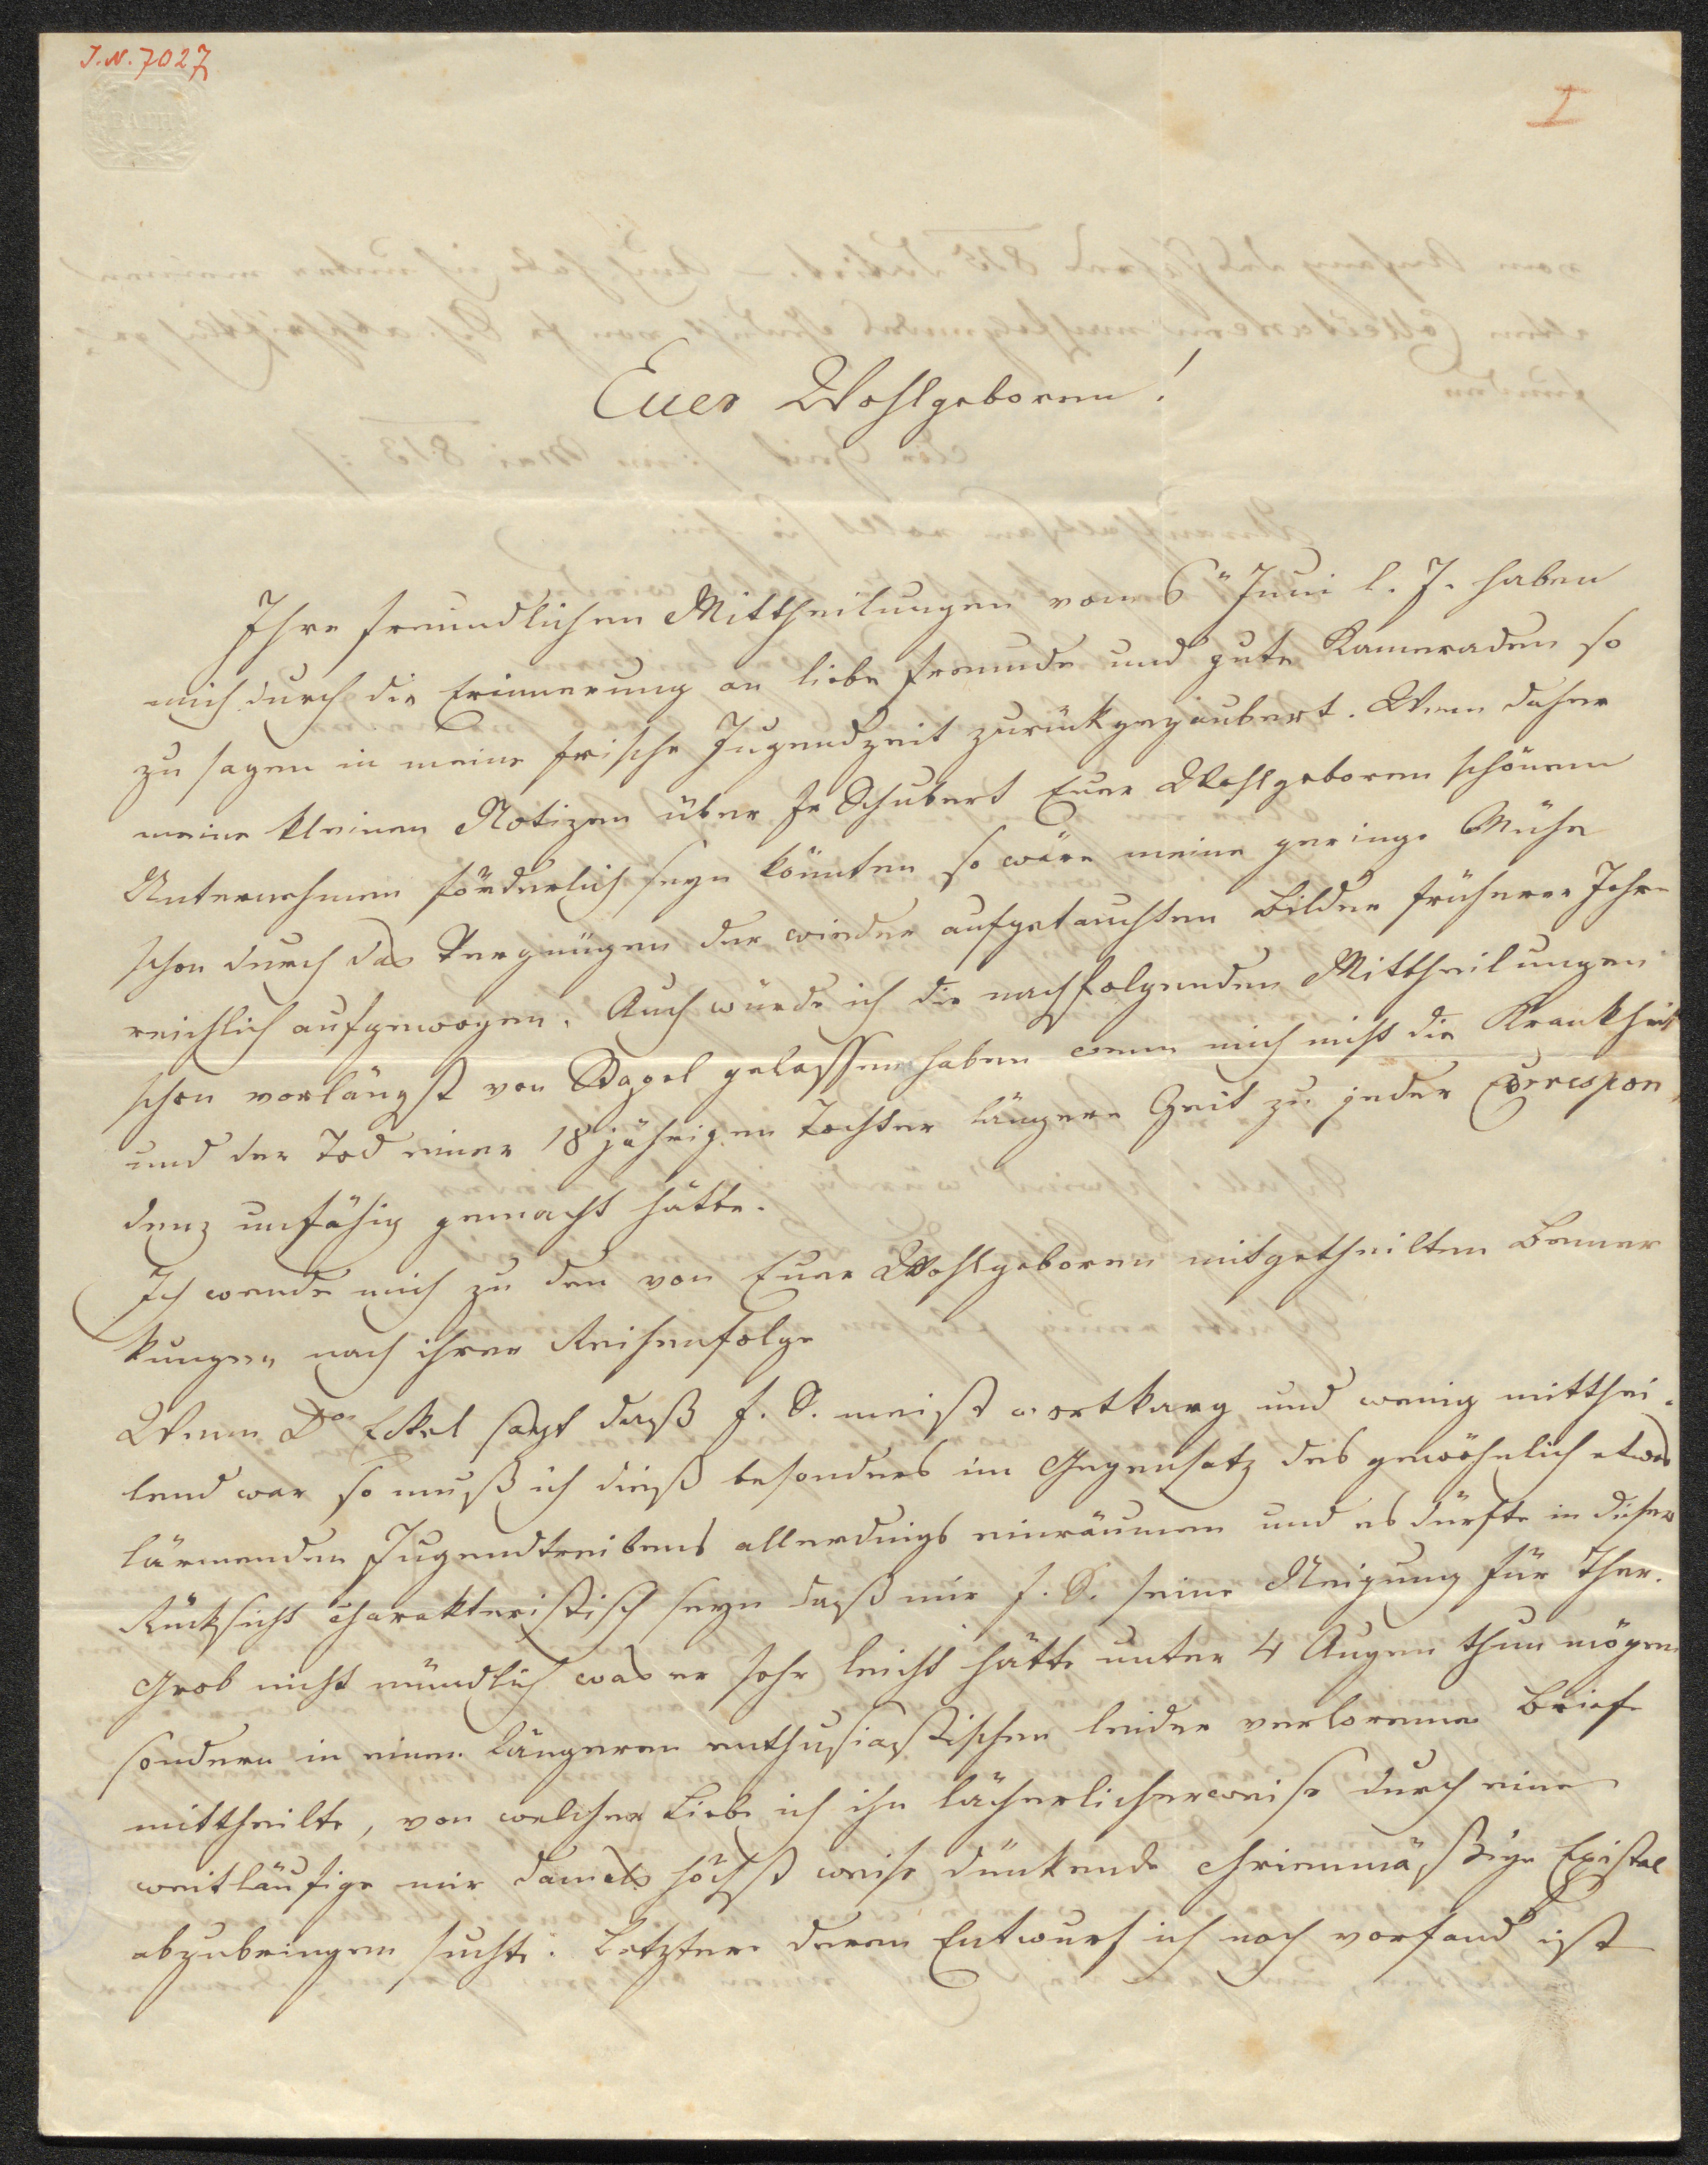 I. N. 7027
I
BATH
Euer Wohlgeboren!
Ihre freundlichen Mittheilungen vom 6" Juni l. J. haben
mich durch die Erinnerung an liebe Freunde und gute Kameraden so
zu sagen in meine frische Jugendzeit zurückgezaubert. Wenn daher
meine kleinen Notizen über Fr Schubert Euer Wohlgeboren schönem
Unternehmen förderlich seyn könnten so wäre meine geringe Mühe
schon durch das Vergnügen der wieder aufgetauchten Bilder früherer Jahre
reichlich aufgewogen. Auch würde ich die nachfolgenden Mittheilungen
schon vorlängst von Stapel gelassen haben wenn mich nicht die Krankheit
und der Tod einer 18 jährigen Tochter längere Zeit zu jeder Correspon
denz unfähig gemacht hätte.
Ich wende mich zu den von Euer Wohlgeboren mitgetheilten Bemer
kungen nach ihrer Reihenfolge
Wenn Dor Eckel sagt daß F. S. meist wortkarg und wenig mitthei-
lend war so muß ich dieß besonders im Gegensatz des gewöhnlich etwas
lärmenden Jugendtreibens allerdings einräumen und es dürfte in dieser
Rücksicht charakteristisch seyn daß mir F. S. seine Neigung für Ther.
Grob nicht mündlich was er sehr leicht hätte unter 4 Augen thun mögen
sondern in einem längeren enthusiastischen leider verlorenen Briefe
mittheilte, von welcher Liebe ich ihn lächerlicherweise durch eine
weitläufige mir damals höchst weise dünkende chrienmäßige Epistel
abzubringen suchte. Letztere deren Entwurf ich noch vorfand ist